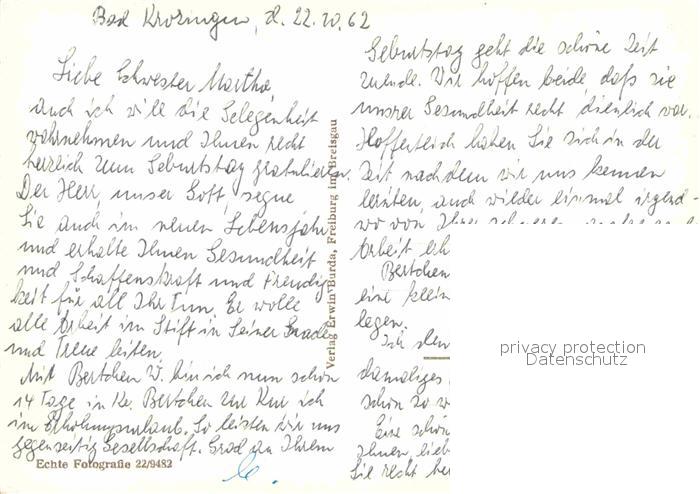 Bad Krozingen, d. 22.10.62
Liebe Schwester Martha,
auch ich will die Gelegenheit
wahrnehmen und Ihnen recht
herzlich zum Geburtstag gratulieren.
Der Herr, unser Gott, segne
Sie auch im neuen Lebensjahr
und erhalte Ihnen Gesundheit
und Schaffenskraft und Freudig-
keit für all Ihr Tun. Er wolle
alle Arbeit im Stift in Seiner Gnade
und Treue leiten.
Mit Bertchen W. bin ich nun schon
14 Tage in Kr. Bertchen zur Kur ich
im Erholungsurlaub. So leisten wir uns
gegenseitig Gesellschaft. Grad an Ihrem
Echte Fotografie 22/9482
Verlag Erwin Burda, Freiburg im Breisgau
Geburtstag geht die schöne Zeit
zuende. Wir hoffen beide, daß sie
unsrer Gesundheit recht dienlich war.
Hoffentlich haben Sie sich in der
Zeit nachdem wir uns kennen
lernten, auch wieder einmal irgend-
wo von Ihrer
Arbeit erh
Bertchen
eine klein
legen.
Ich den
damaliges
schon so w
Eine schön
Ihnen, lieb
Sie recht her
privacy protection
Datenschutz